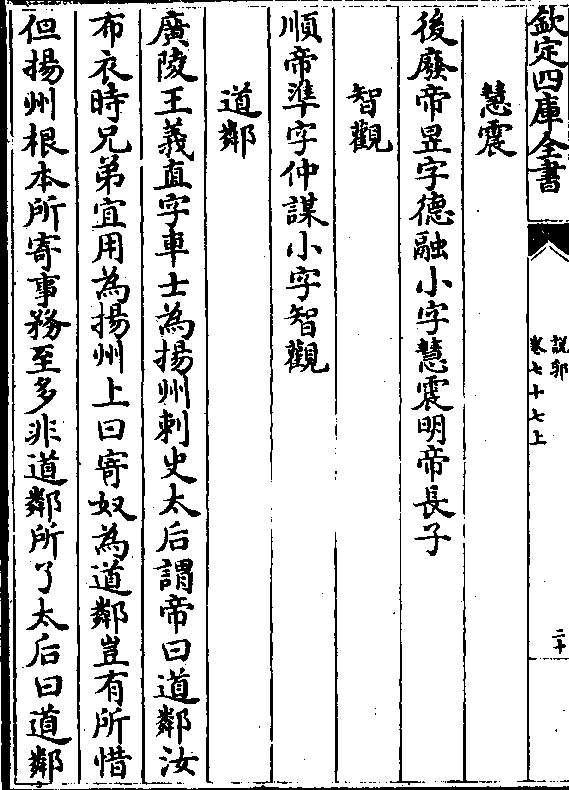 欽定四庫全書
說郛
卷七十七上
二十
慧震
後廢帝昱字德融小字慧震明帝長子
智觀
順帝準字仲謀小字智觀
道鄰
廣陵王義直字車士為揚州刺史太后謂帝曰道鄰汝
布衣時兄弟宜用為揚州上曰寄奴為道鄰豈有所惜
但揚州根本所寄事務至多非道鄰所了太后曰道鄰